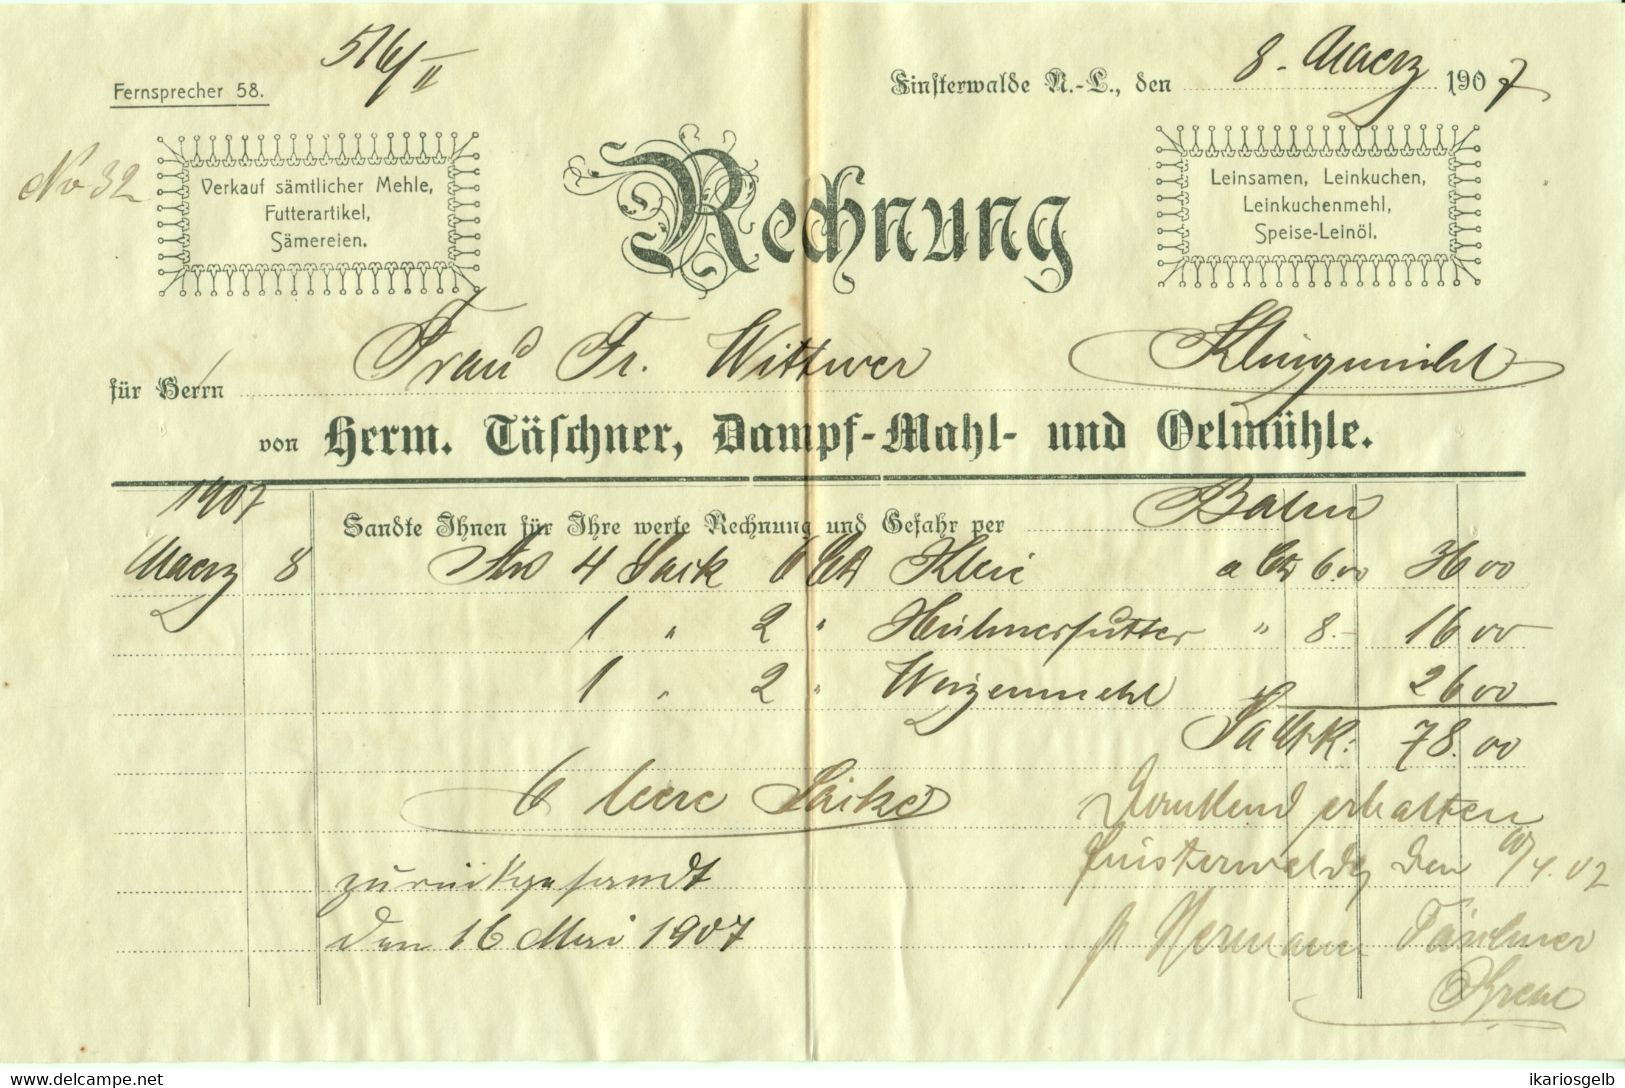 516/II
Fernsprecher 58.
Finsterwalde N.-L., den 8. Maerz 1907
No 32
Verkauf sämtlicher Mehle,
Futterartikel,
Sämereien.
Rechnung
Leinsamen, Leinkuchen,
Leinkuchenmehl,
Speise-Leinöl.
für Herrn Frau Fr. Wittwer Klingmühl
von Herm. Täschner, Dampf-Mahl- und Oelmühle.
1907
Sandte Ihnen für Ihre werte Rechnung und Gefahr per Bahn
Maerz 8 4 Sack 6 Ctr Kleie a Ctr 6.00 36 00
1 " 2 " Hühnerfutter " 8.- 16 00
1 " 2 " Weizenmehl 26 00
78.00
6 leere Säcke
zurückgesandt
den 16 Mai 1907
Dankend erhalten
Finsterwalde, den
Hermann Täschner
ikariosgelb
www.delcampe.net